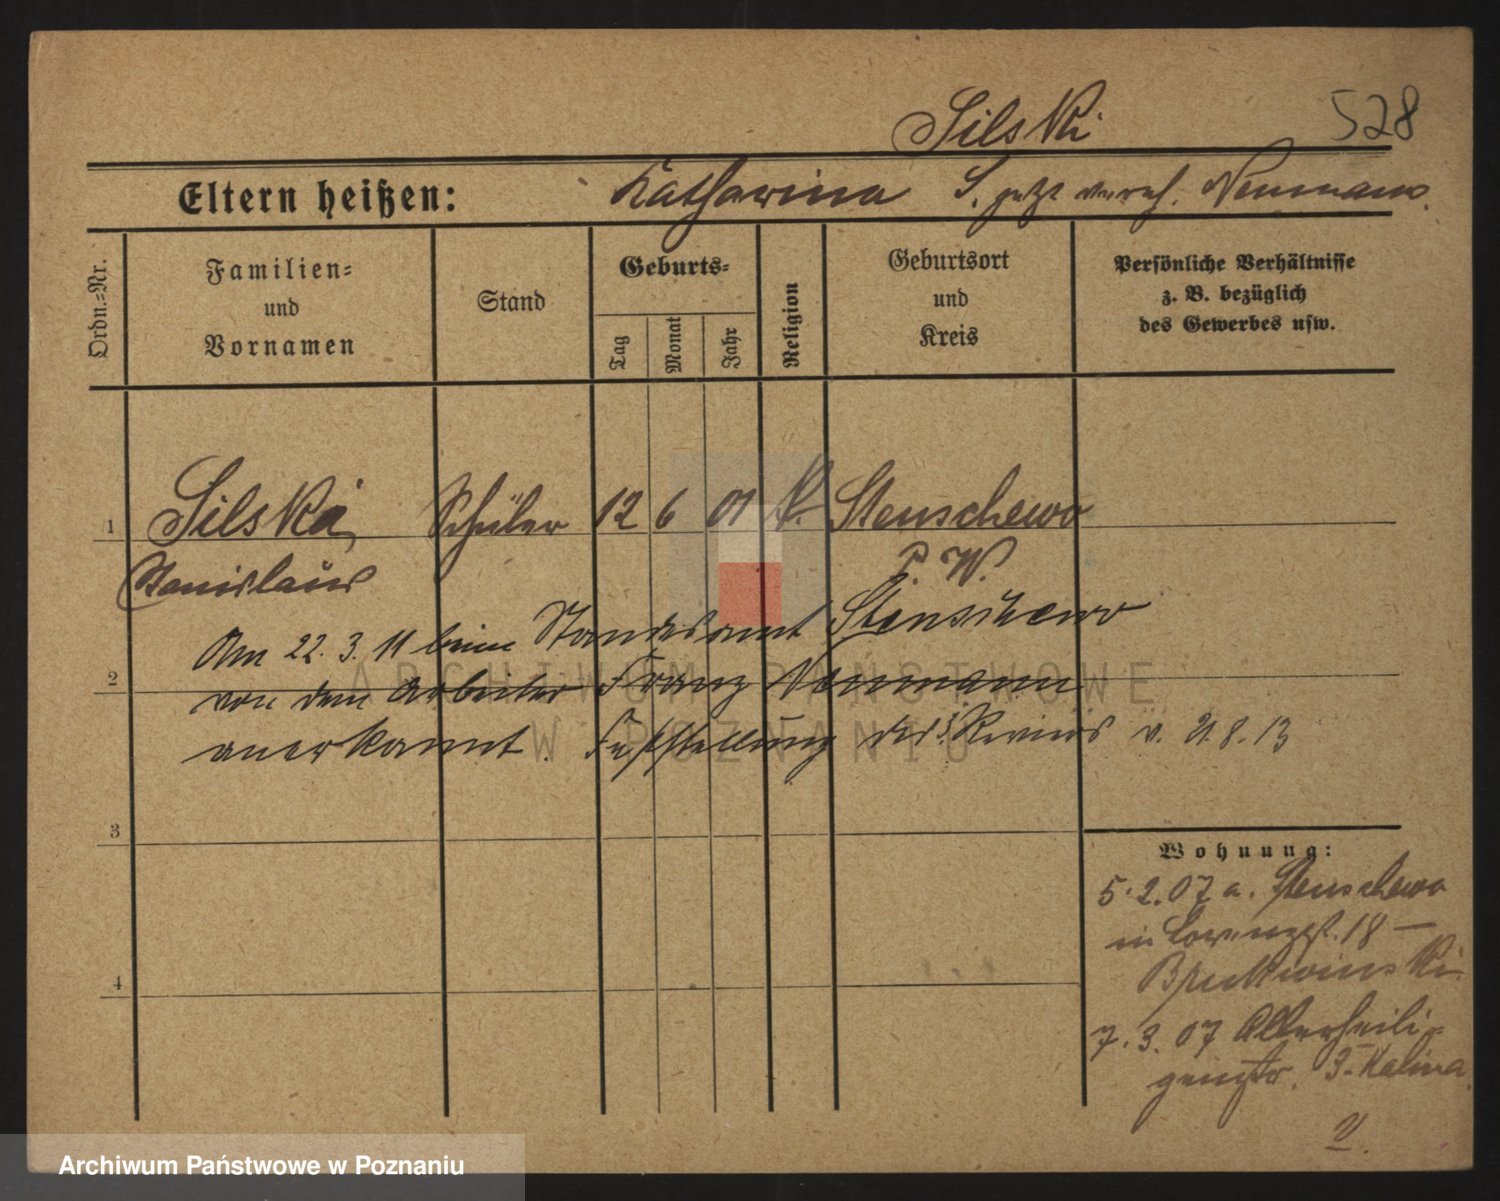 Silski 528
Eltern heißen: Katharina S. jetzt vereh. Neumann.
Ordn.=Nr.
Familien=
und
Vornamen
Stand
Geburts=
Tag
Monat
Jahr
Religion
Geburtsort
und
Kreis
Persönliche Verhältnisse
z. B. bezüglich
des Gewerbes usw.
1 Silski, Schüler 12 6 01 k. Stenschewo
Stanislaus P. W.
Am 22. 3. 11 beim Standesamt Stenschewo
2 von dem Arbeiter Franz Neumann
anerkannt. Feststellung des Reviers v. 21.8.13
3
Wohnung:
5.2.07 a. Stenschewo
in 18 —
4
7.3.07 Allerheili-
genstr. 3 - Kalina.
ARCHIWUM PAŃSTWOWE
W POZNANIU
Archiwum Państwowe w Poznaniu